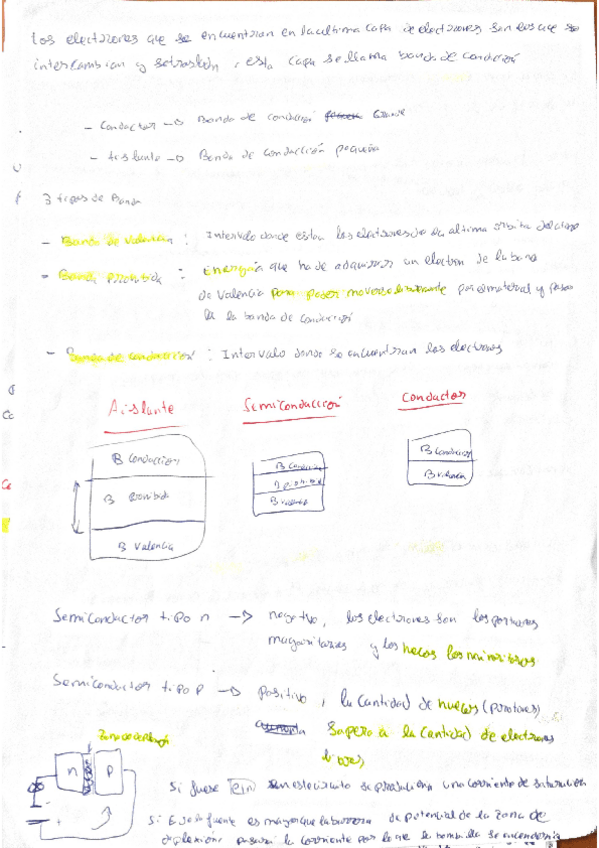 Los electrones que se encuentran en la ultima capa de electrones son los que se
intercambian y , esta capa se llama banda de conducción
- Conductor → Banda de conducción Grande
- Aislante → Banda de Conducción pequeña
3 tipos de Banda
- Banda de Valencia : Intervalo donde estan los electrones de la ultima orbita del
- Banda Prohibida : Energia que ha de adquirir un electron de la
de Valencia para poder moverse por el material y pasar
a la banda de conducción
- Banda de conducción : Intervalo donde se encuentran los electrones
Aislante Semiconducción Conductor
B Conduccion
B Prohibida
B Valencia
B Conduccion
B prohibida
B Valencia
B Conduccion
B Valencia
Semiconductor tipo n → negativo, los electrones son los
y los los
Semiconductor tipo p → Positivo, la Cantidad de huecos
Supera a la Cantidad de electrones
libres
Zona de
n p
- +
Si fuese una corriente de saturación
Si fuente es mayor que la barrera de potencial de la zona de
la corriente por lo que la bombilla se